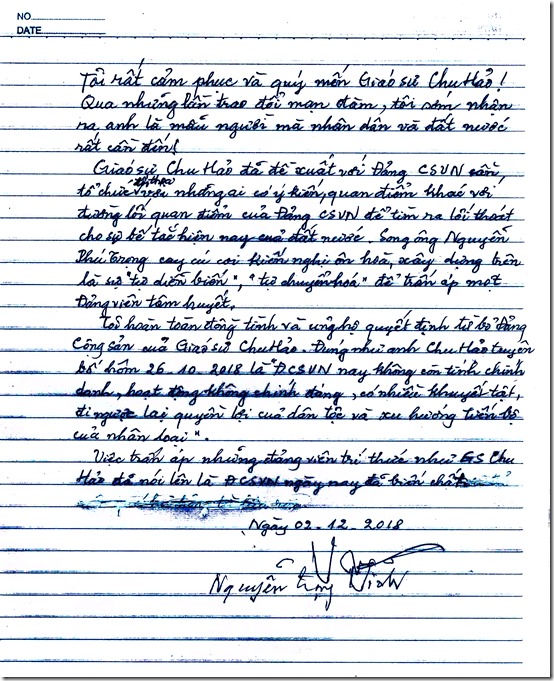 NO.
DATE
Tôi rất cảm phục và quý mến Giáo sư Chu Hảo!
Qua những lần trao đổi mạn đàm, tôi sớm nhận
ra anh là mẫu người mà nhân dân và đất nước
rất cần đến!
Giáo sư Chu Hảo đã đề xuất với Đảng CSVN cần,
tổ chức với những ai có ý kiến, quan điểm khác với
đường lối quan điểm của Đảng CSVN để tìm ra lối thoát
cho sự bế tắc hiện nay của đất nước. Song ông Nguyễn
Phú Trọng cay cú coi kiến nghị ôn hoà, xây dựng trên
là sự "tự diễn biến", "tự chuyển hoá" để trấn áp một
Đảng viên tâm huyết.
Tôi hoàn toàn đồng tình và ủng hộ quyết định từ bỏ Đảng
Cộng sản của Giáo sư Chu Hảo. Đúng như anh Chu Hảo tuyên
bố hôm 26.10.2018 là "ĐCSVN nay không còn tính chính
danh, hoạt động không chính đáng, có nhiều khuyết tật,
đi ngược lại quyền lợi của dân tộc và xu hướng tiến bộ
của nhân loại".
Việc trấn áp những đảng viên trí thức như GS Chu
Hảo đã nói lên là ĐCSVN ngày nay đã biến chất
Ngày 02-12-2018
Nguyễn Trọng Vĩnh